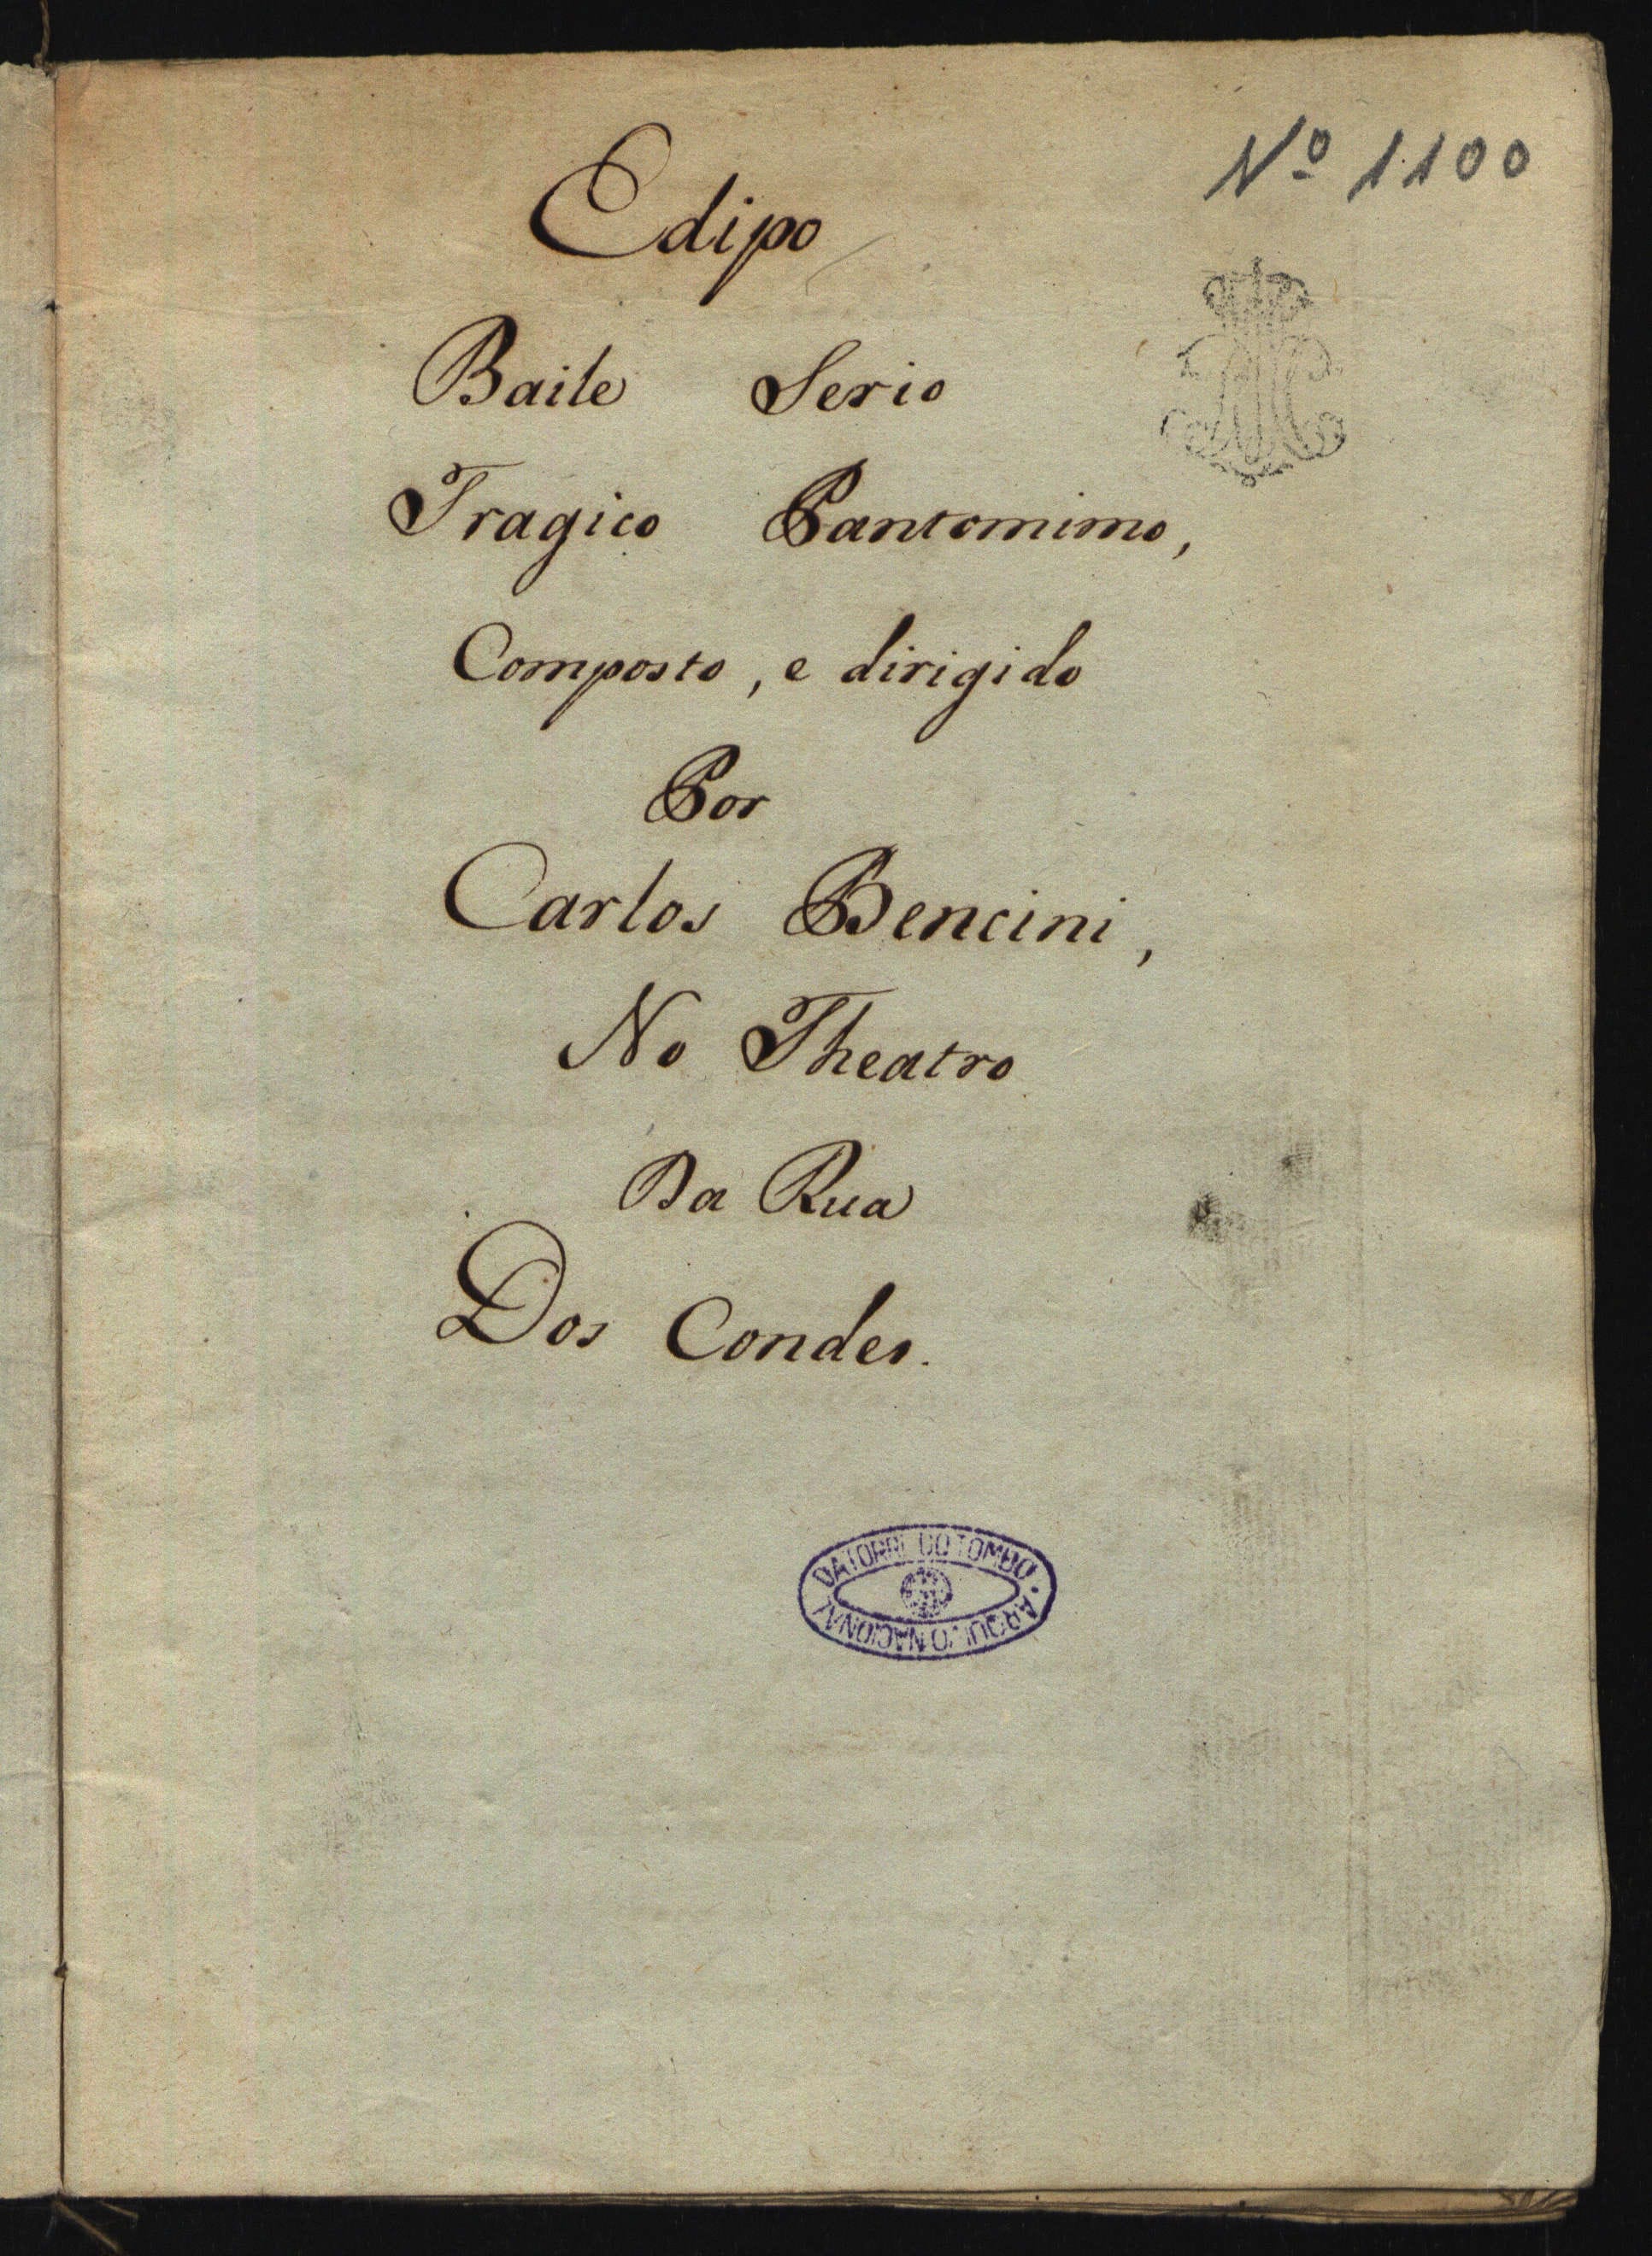 Nº 1100
Edipo
Baile Serio
Tragico Pantomimo,
Composto, e dirigido
Por
Carlos Bencini,
No Theatro
Da Rua
Dos Condes.
ARQUIVO NACIONAL DA TORRE DO TOMBO